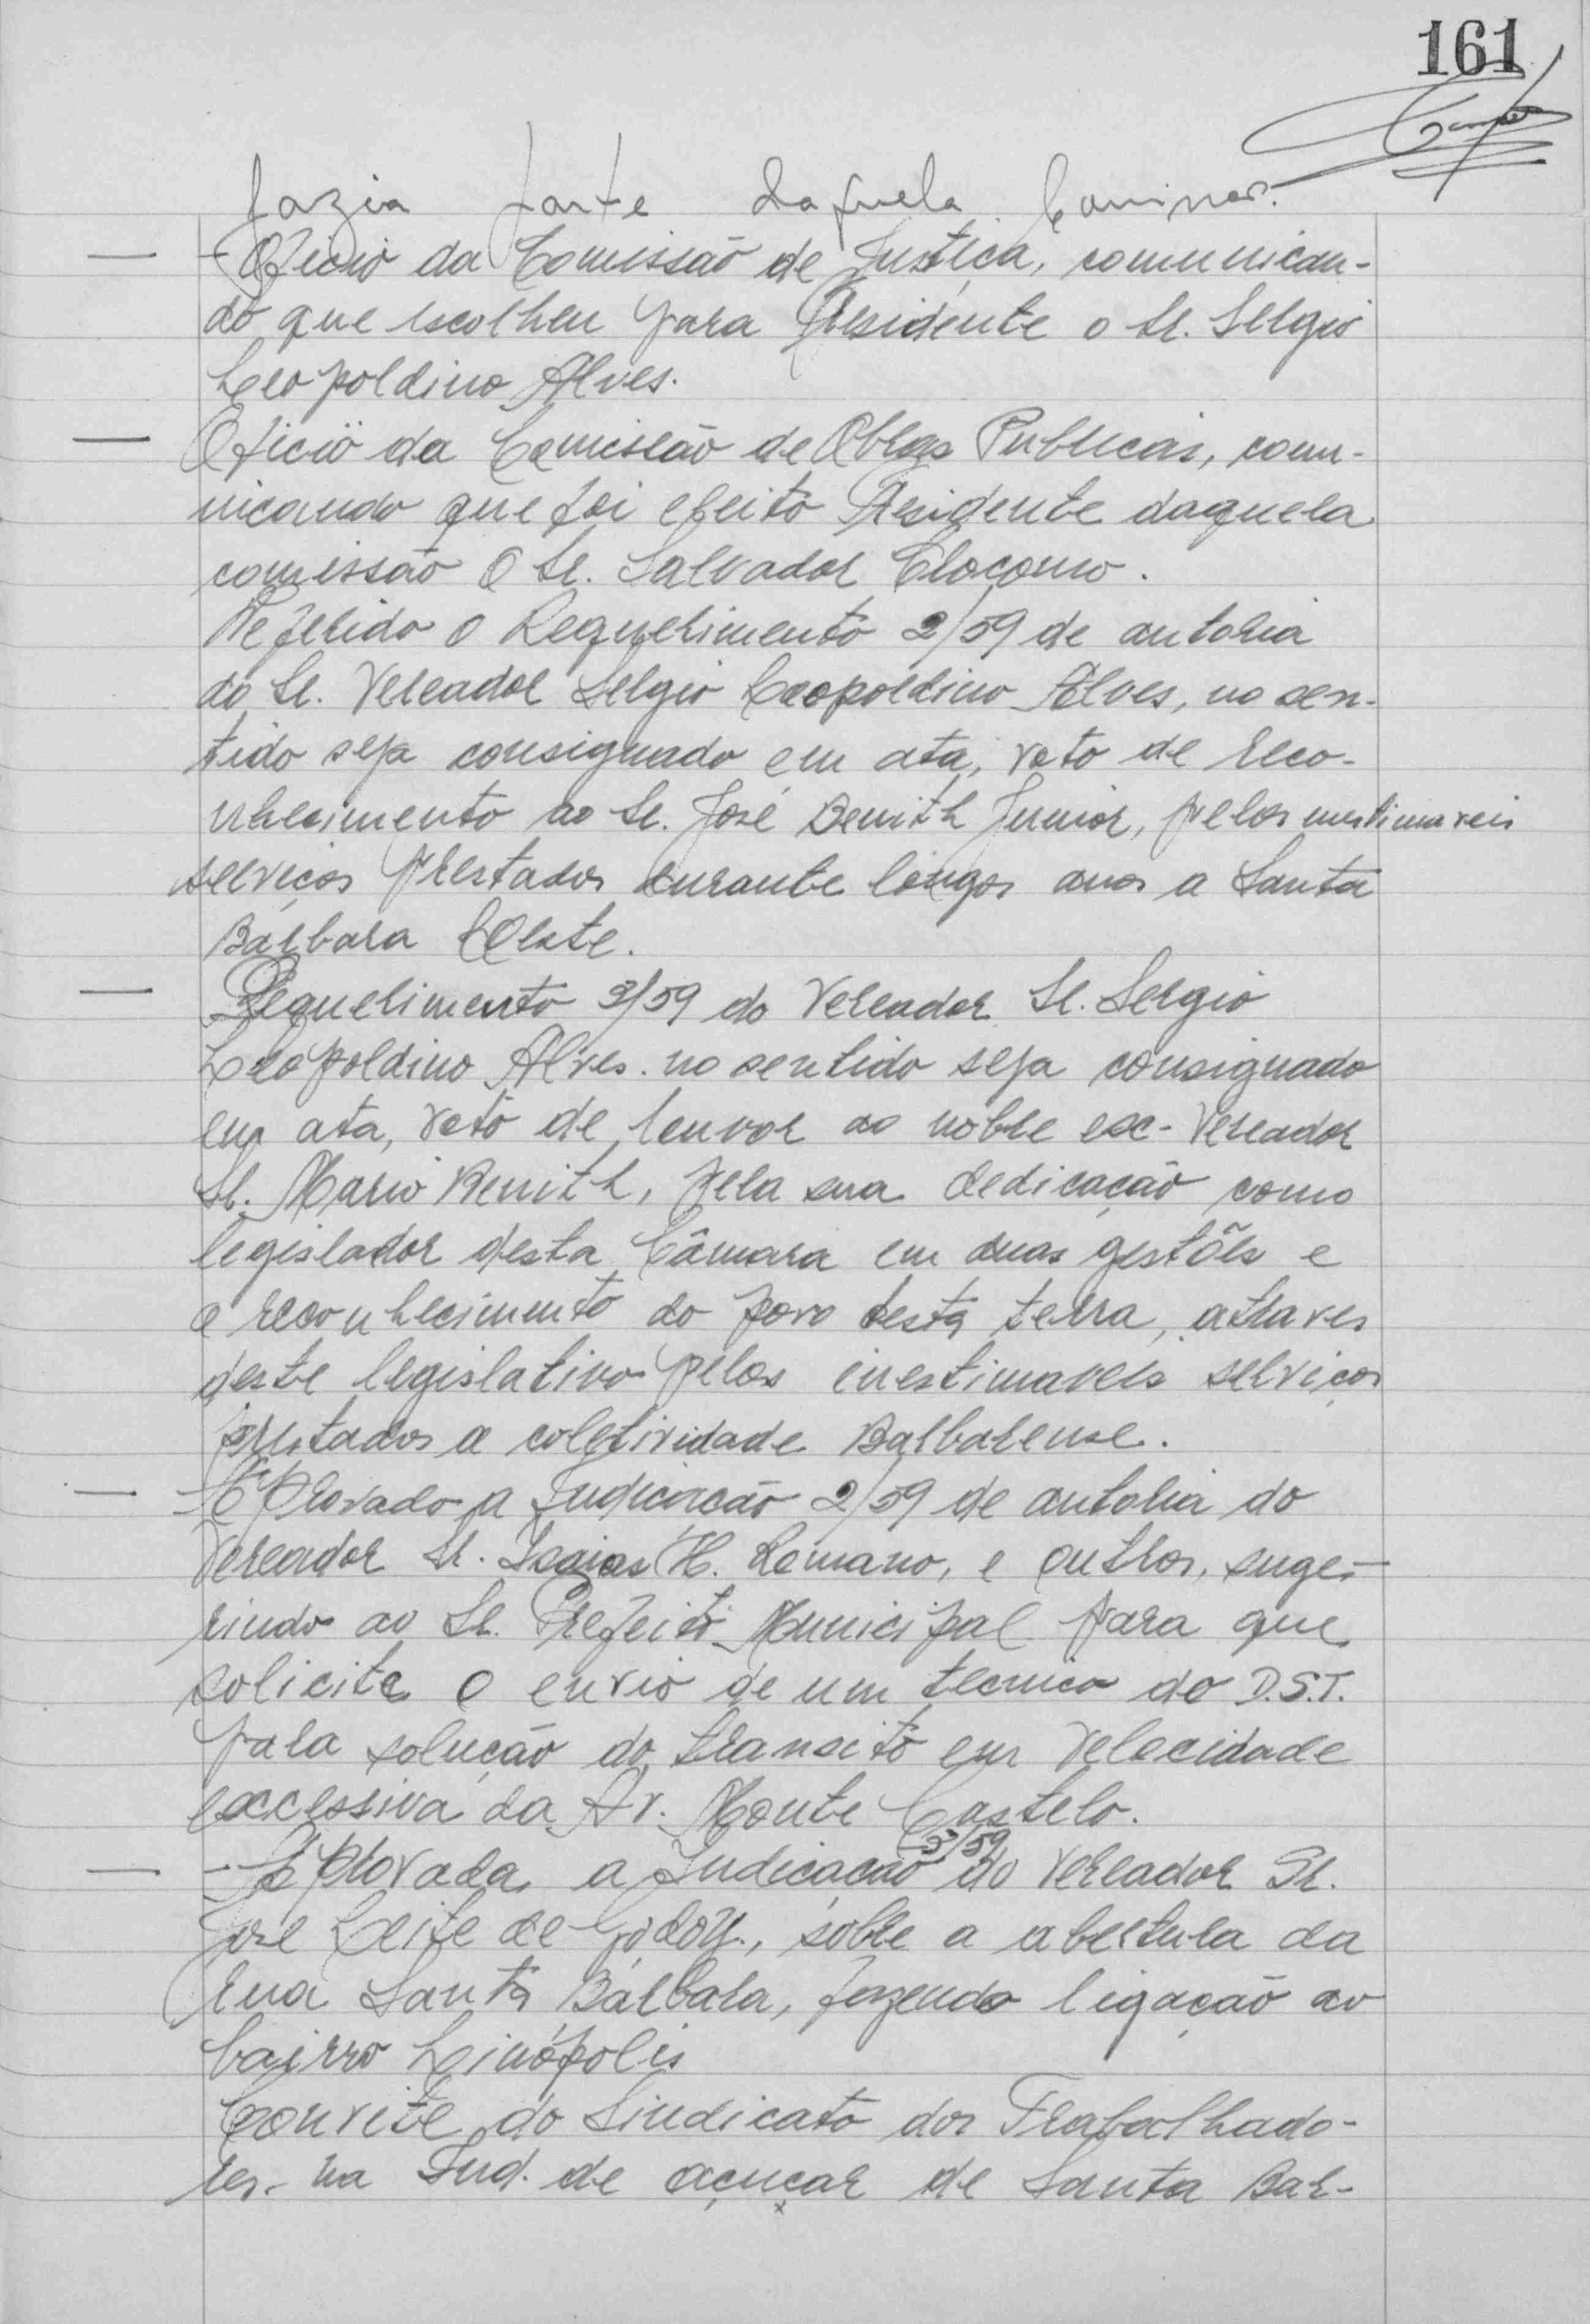 161
fazia parte daquela Comissão.
- Oficio da Comissão de Justiça, comunican-
do que escolheu para Presidente o Sr. Sergio
Leopoldino Alves.
Oficio da Comissão de Obras Publicas, comu-
nicando que foi eleito Presidente daquela
comissão o Sr. Salvador
Deferido o Requerimento 2/59 de autoria
do Sr. Vereador Sergio Leopoldino Alves, no sen-
tido seja consignado em ata, voto de reco-
nhecimento ao Sr. José Benith Junior, pelos inestimaveis
serviços prestados durante longos anos a Santa
Bárbara d'Oeste.
Requerimento 3/59 do Vereador Sr. Sergio
Leopoldino Alves. no sentido seja consignado
em ata, voto de louvor ao nobre ex-Vereador
Sr. Mario Benith, pela sua dedicação como
legislador desta Câmara em duas gestões e
o reconhecimento do povo desta terra, atraves
deste legislativo pelos inestimaveis serviços
prestados a coletividade Barbarense.
- Aprovado a Indicação 2/59 de autoria do
Vereador Sr. Isaias H. Romano, e outros, suge-
rindo ao Sr. Prefeito Municipal para que
solicite o envio de um tecnico do D.S.T.
para solução do transito em velocidade
excessiva da Av. Monte Castelo.
- Aprovada a Indicação 3/59 do vereador Sr.
José Leite de Godoy, sobre a abertura da
rua Santa Bárbara, fazendo ligação ao
bairro Linópolis
Convite do Sindicato dos Trabalhado-
res na Ind. de açucar de Santa Bar-